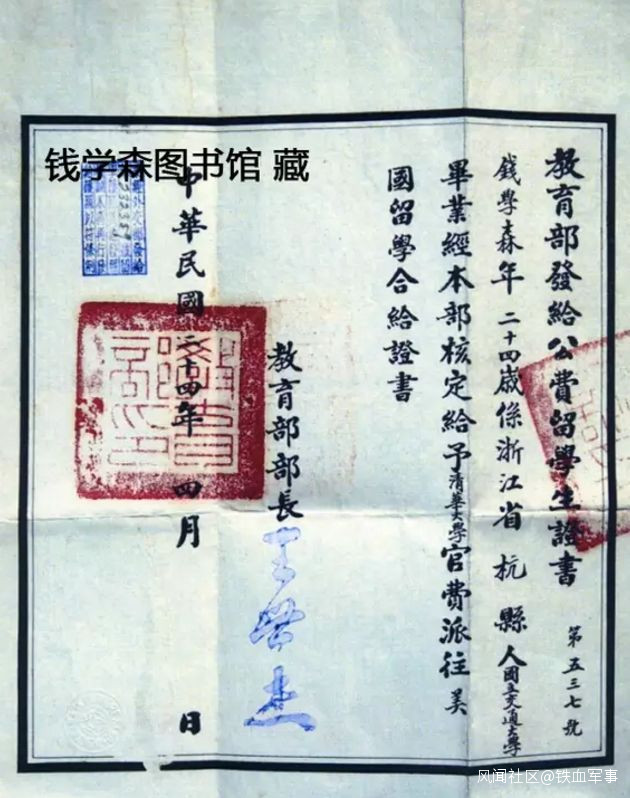 钱学森图书馆 藏
教育部發給公費留學生證書
第五三七號
錢學森年二十四歲係浙江省杭縣人國立交通大學
畢業經本部核定給予清華大學官費派往美
國留學合給證書
教育部部長王世杰
中華民國二十四年四月 日
教育部印
风闻社区@铁血军事